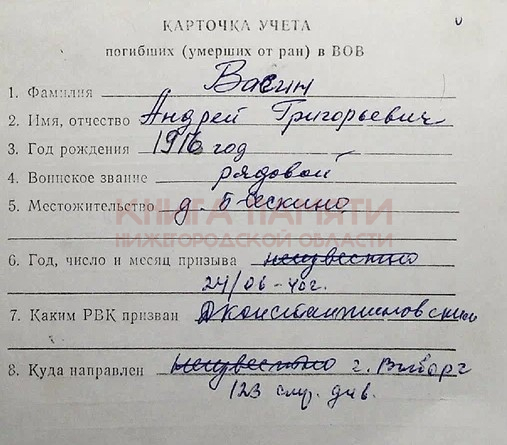 КАРТОЧКА УЧЕТА
погибших (умерших от ран) в ВОВ
1. Фамилия Васин
2. Имя, отчество Андрей Григорьевич
3. Год рождения 1916 год
4. Воинское звание рядовой
5. Местожительство д.
КНИГА ПАМЯТИ
НИЖЕГОРОДСКОЙ ОБЛАСТИ
6. Год, число и месяц призыва неизвестно
24/06-40г.
7. Каким РВК призван Дконстантиновский
8. Куда направлен неизвестно г. Выборг
123 стр. див.